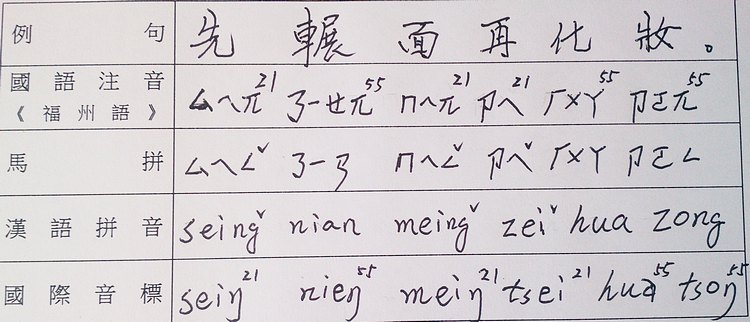 例句 先 輾 面 再 化 妝 。
國語注音 ㄙㄟㄫ²¹ ㄋㄧㄝㄫ⁵⁵ ㄇㄟㄫ²¹ ㄗㄟ²¹ ㄏㄨㄚ⁵⁵ ㄗㄛㄫ⁵⁵
《福州語》
馬拼 ㄙㄟㄥˇ ㄋㄧㄢ ㄇㄟㄥˇ ㄗㄟˇ ㄏㄨㄚ ㄗㄛㄥ
漢語拼音 seingˇ nian meingˇ zeiˇ hua zong
國際音標 seiŋ²¹ nieŋ⁵⁵ meiŋ²¹ tsei²¹ hua⁵⁵ tsoŋ⁵⁵